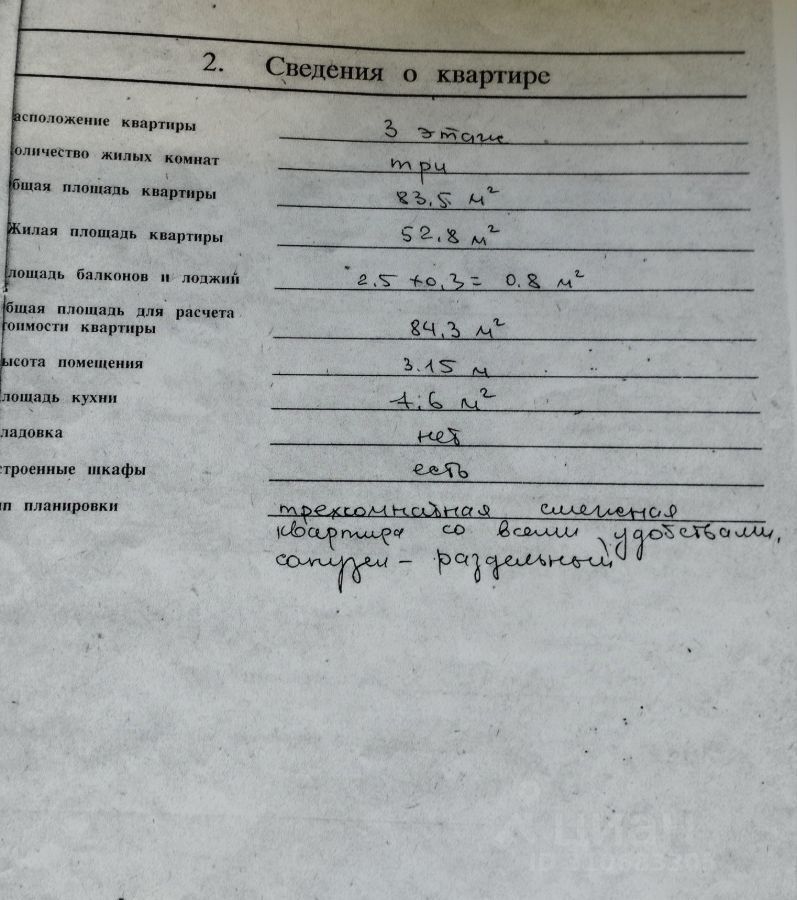 2. Сведения о квартире
асположение квартиры 3 этаж
оличество жилых комнат три
бщая площадь квартиры 83,5 м²
Жилая площадь квартиры 52,8 м²
лощадь балконов и лоджий 2.5 *0,3= 0.8 м²
бщая площадь для расчета
тоимости квартиры 84,3 м²
ысота помещения 3.15 м
лощадь кухни 7,6 м²
ладовка нет
строенные шкафы есть
ип планировки трехкомнатная смежная
квартира со всеми удобствами,
санузел – раздельный
циан